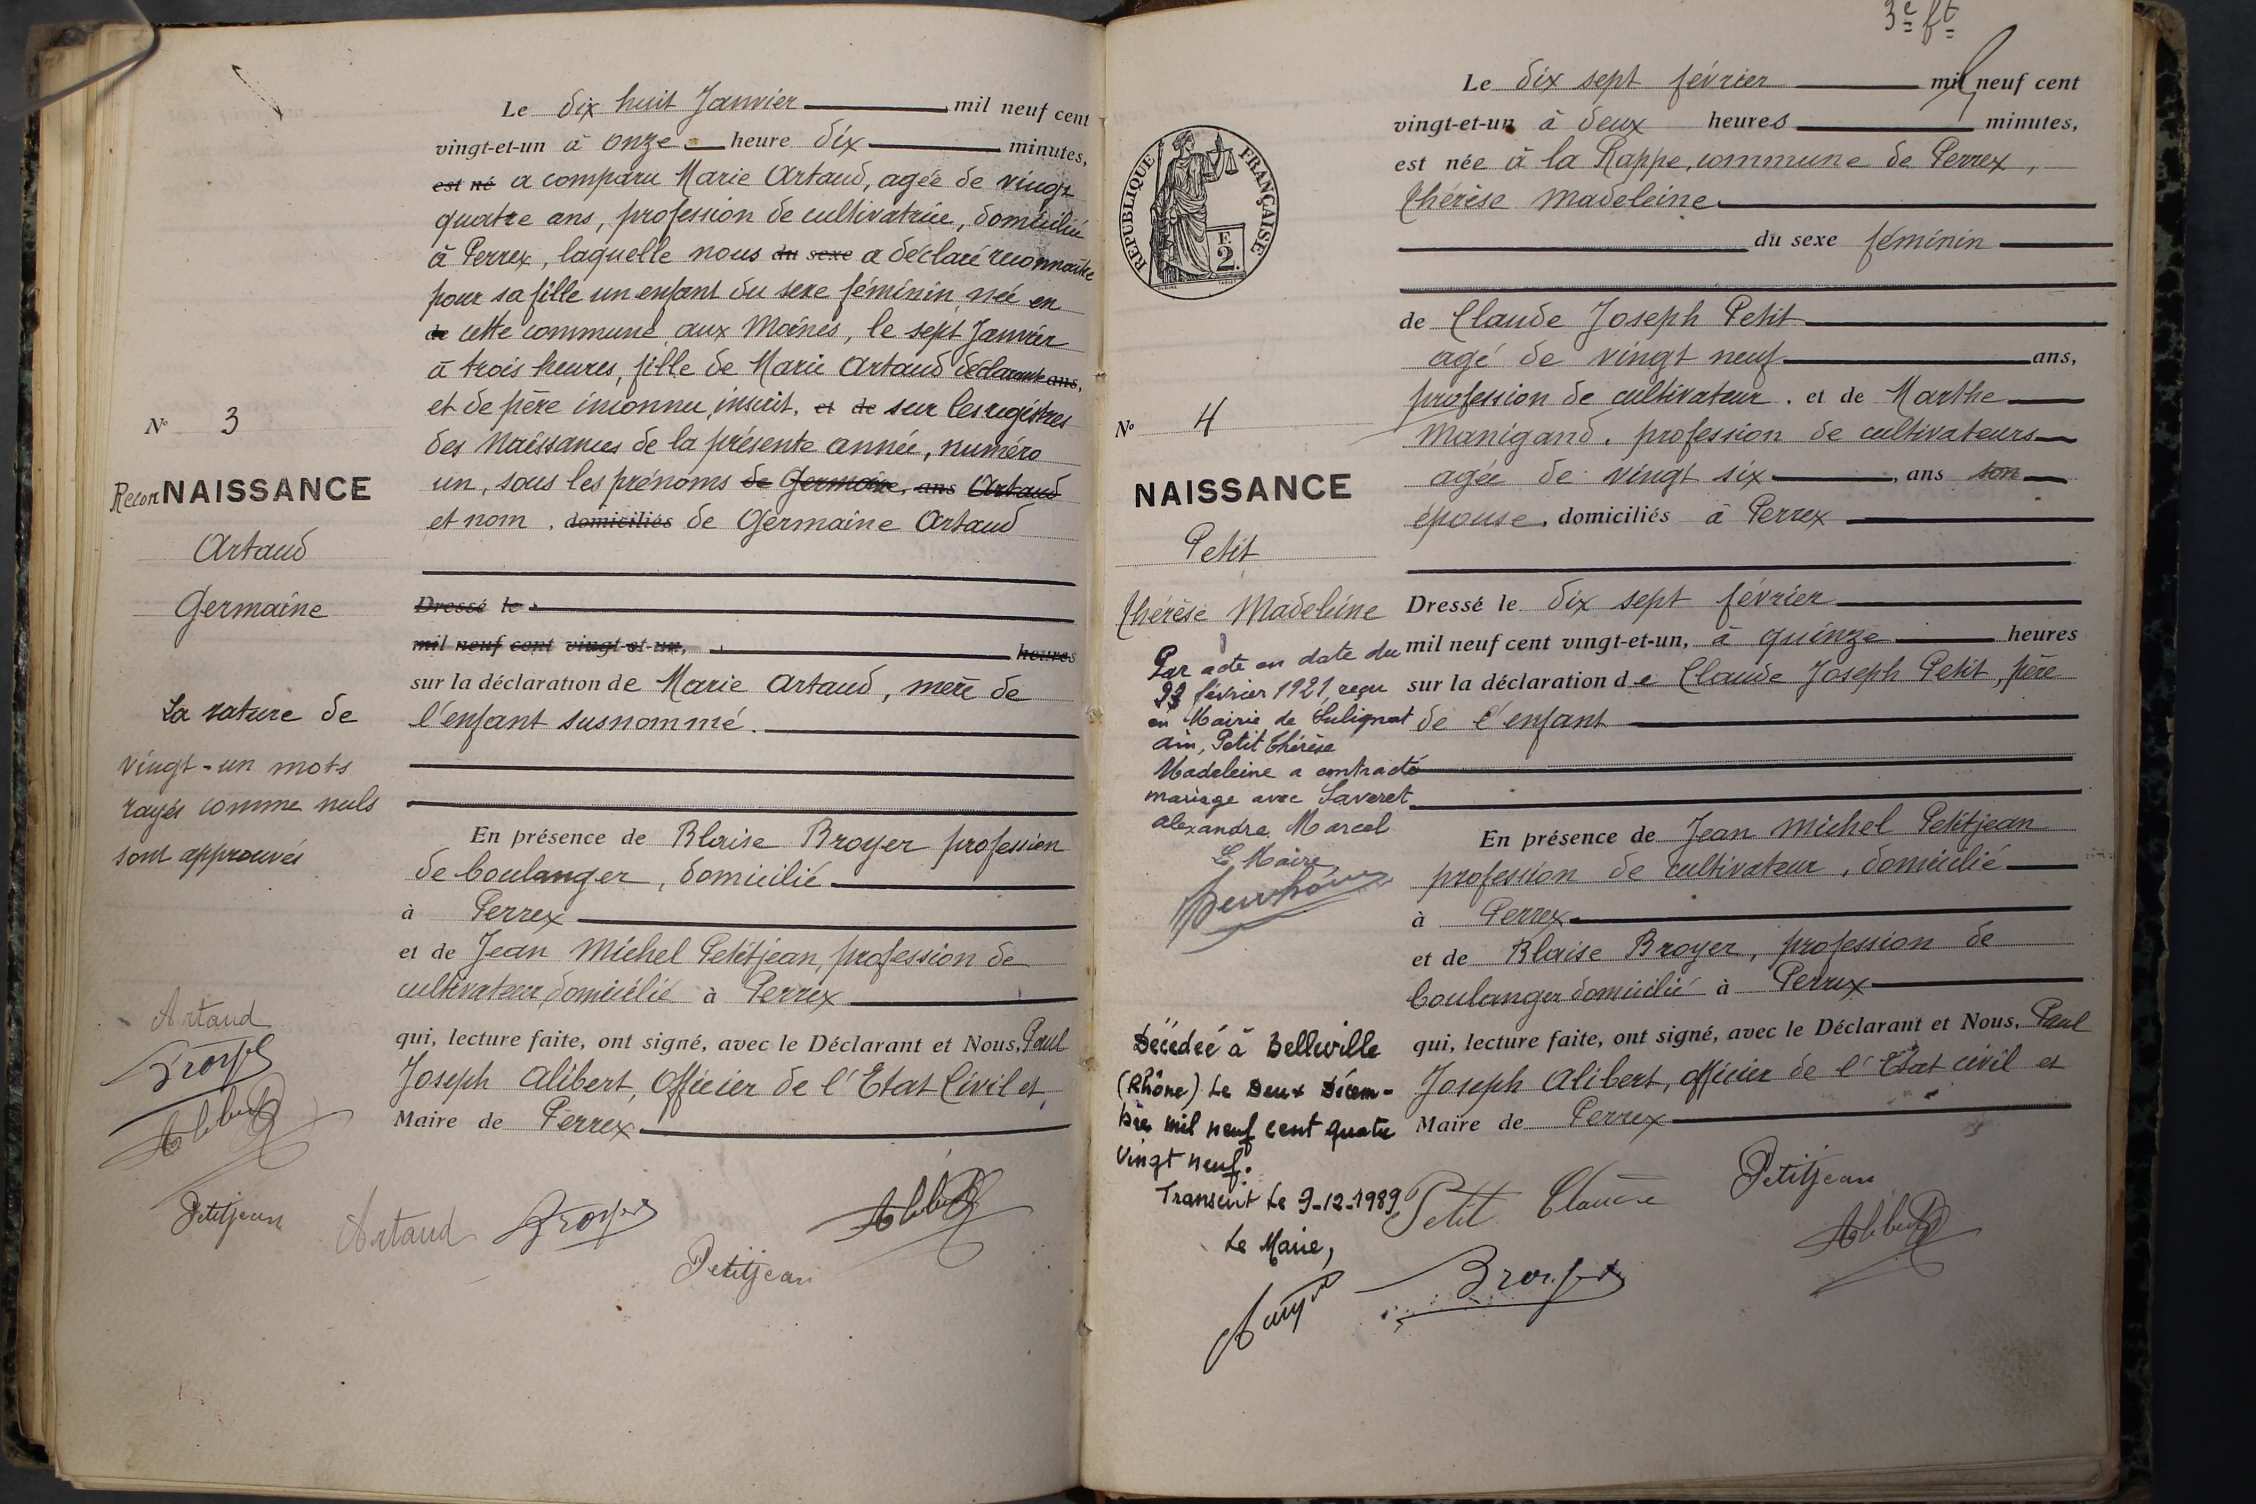 Le dix huit Janvier mil neuf cent
vingt-et-un à onze heure dix minutes,
est né a comparu Marie Artaud, agée de vingt
quatre ans, profession de cultivatrice, domiciliée
à Perrex, laquelle nous du sexe a déclaré reconnaître
pour sa fille un enfant du sexe féminin née en
de cette commune aux Moines, le sept Janvier
à trois heures, fille de Marie Artaud déclarante ans,
et de père inconnu, inscrit, et de sur les registres
des Naissances de la présente année, numéro
un, sous les prénoms de Germaine, ans Artaud
et nom, domiciliés de Germaine Artaud
Dressé le
mil neuf cent vingt-et-un, heures
sur la déclaration de Marie Artaud, mère de
l'enfant susnommé.
En présence de Blaise Broyer profession
de boulanger, domicilié
à Perrex
et de Jean Michel Petitjean, profession de
cultivateur, domicilié à Perrex
qui, lecture faite, ont signé, avec le Déclarant et Nous, Paul
Joseph Alibert, Officier de l'Etat Civil et
Maire de Perrex
Artaud Broyer Alibert
Petitjean
N° 3
ReconNAISSANCE
Artaud
Germaine
La rature de
vingt-un mots
rayés comme nuls
sont approuvés
Artaud
Broyer
Alibert
Petitjean
3e ft
Le dix sept février mil neuf cent
vingt-et-un à deux heures minutes,
est née à la Rappe, commune de Perrex,
Thérèse Madeleine
du sexe féminin
de Claude Joseph Petit
agé de vingt neuf ans,
profession de cultivateur, et de Marthe
Manigand, profession de cultivateurs
agée de vingt six, ans son
épouse, domiciliés à Perrex
Dressé le dix sept février
mil neuf cent vingt-et-un, à quinze heures
sur la déclaration de Claude Joseph Petit, père
de l'enfant
En présence de Jean Michel Petitjean
profession de cultivateur, domicilié
à Perrex
et de Blaise Broyer, profession de
boulanger domicilié à Perrex
qui, lecture faite, ont signé, avec le Déclarant et Nous, Paul
Joseph Alibert, officier de l'Etat civil et
Maire de Perrex
Petit Claude Petitjean
Broyer Alibert
REPUBLIQUE FRANÇAISE
F.
2.
N° 4
NAISSANCE
Petit
Thérèse Madeleine
Par acte en date du
février 1921, reçu
en Mairie de Sulignat
Ain, Petit Thérèse
Madeleine a contracté
mariage avec Saveret
Alexandre Marcel
Le Maire
Décédée à Belleville
(Rhône) Le Deux Décem-
bre mil neuf cent quatre
vingt neuf.
Transcrit Le 9-12-1989
Le Maire,